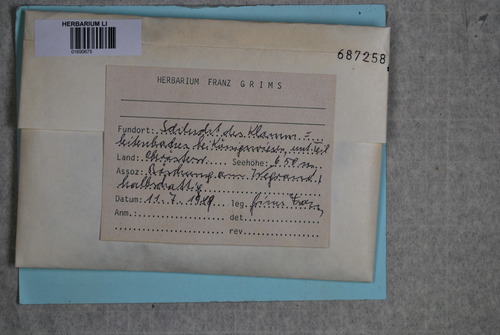 HERBARIUM LI
687258
HERBARIUM FRANZ GRIMS
Fundort: Schlucht des Klamm=
leitenbaches bei Königswiesen
Land: Seehöhe: 650 m
Assoz: Böschung am Wegrand,
halbschattig
Datum: 11. 7. 1989 leg. Grims Franz
Anm.: det.
rev.